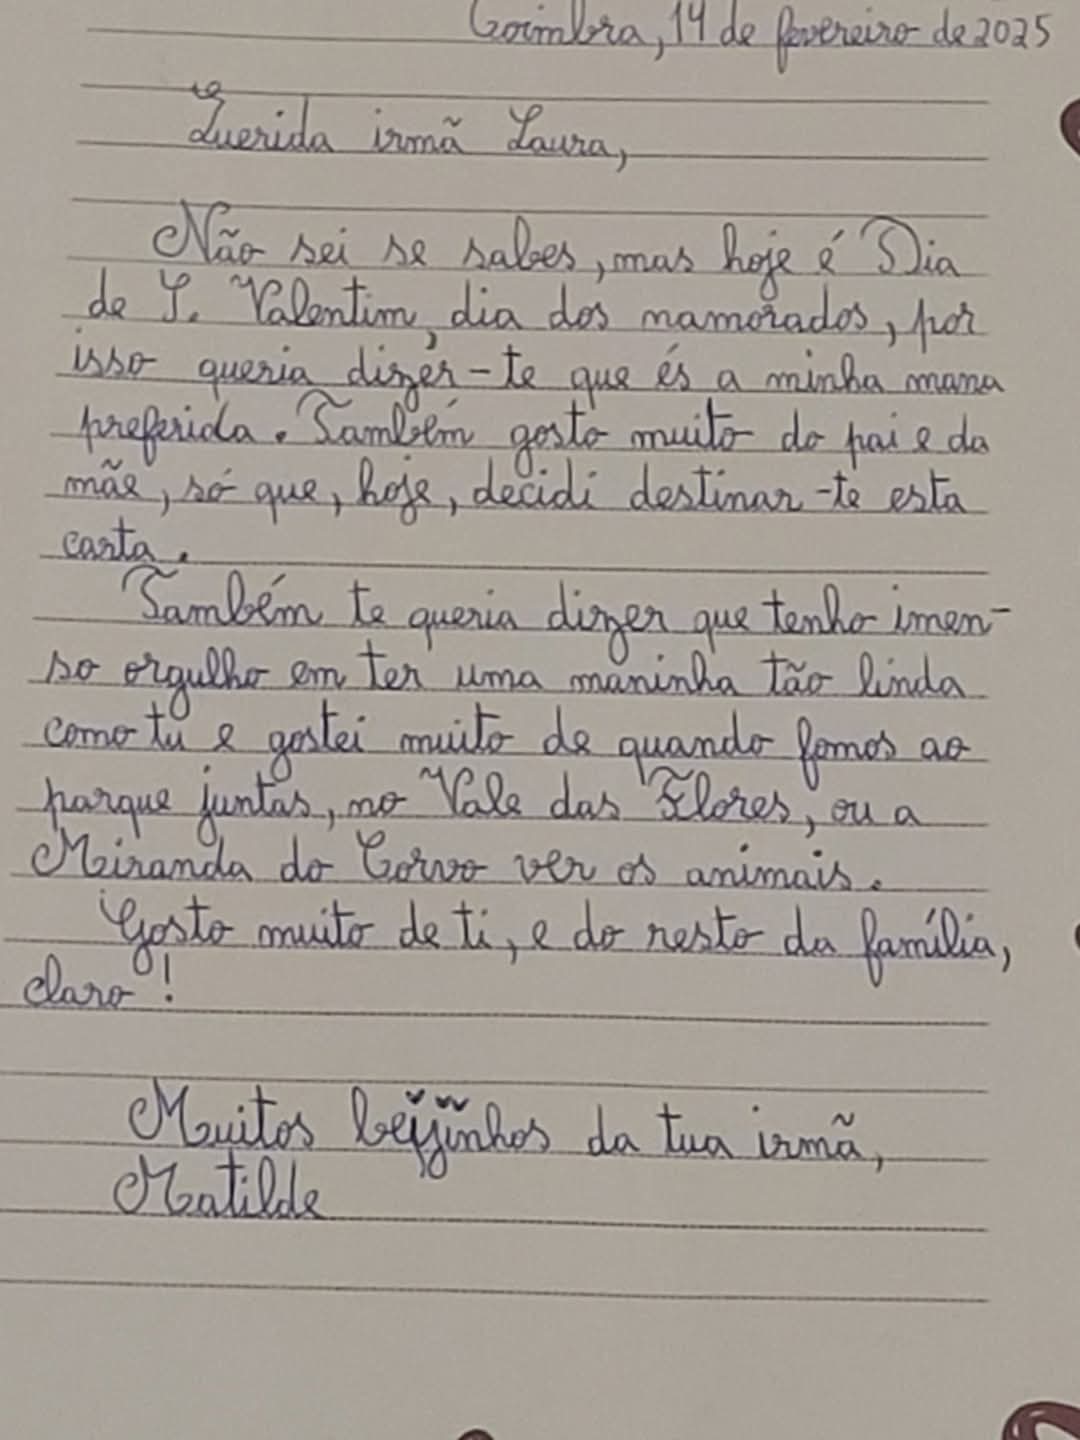 Coimbra, 14 de fevereiro de 2025
Querida irmã Laura,
Não sei se sabes, mas hoje é Dia
de S. Valentim, dia dos namorados, por
isso queria dizer-te que és a minha mana
preferida. Também gosto muito do pai e da
mãe, só que, hoje, decidi destinar-te esta
carta.
Também te queria dizer que tenho imen-
so orgulho em ter uma maninha tão linda
como tu e gostei muito de quando fomos ao
parque juntas, no Vale das Flores, ou a
Miranda do Corvo ver os animais.
Gosto muito de ti, e do resto da família,
claro!
Muitos beijinhos da tua irmã,
Matilde